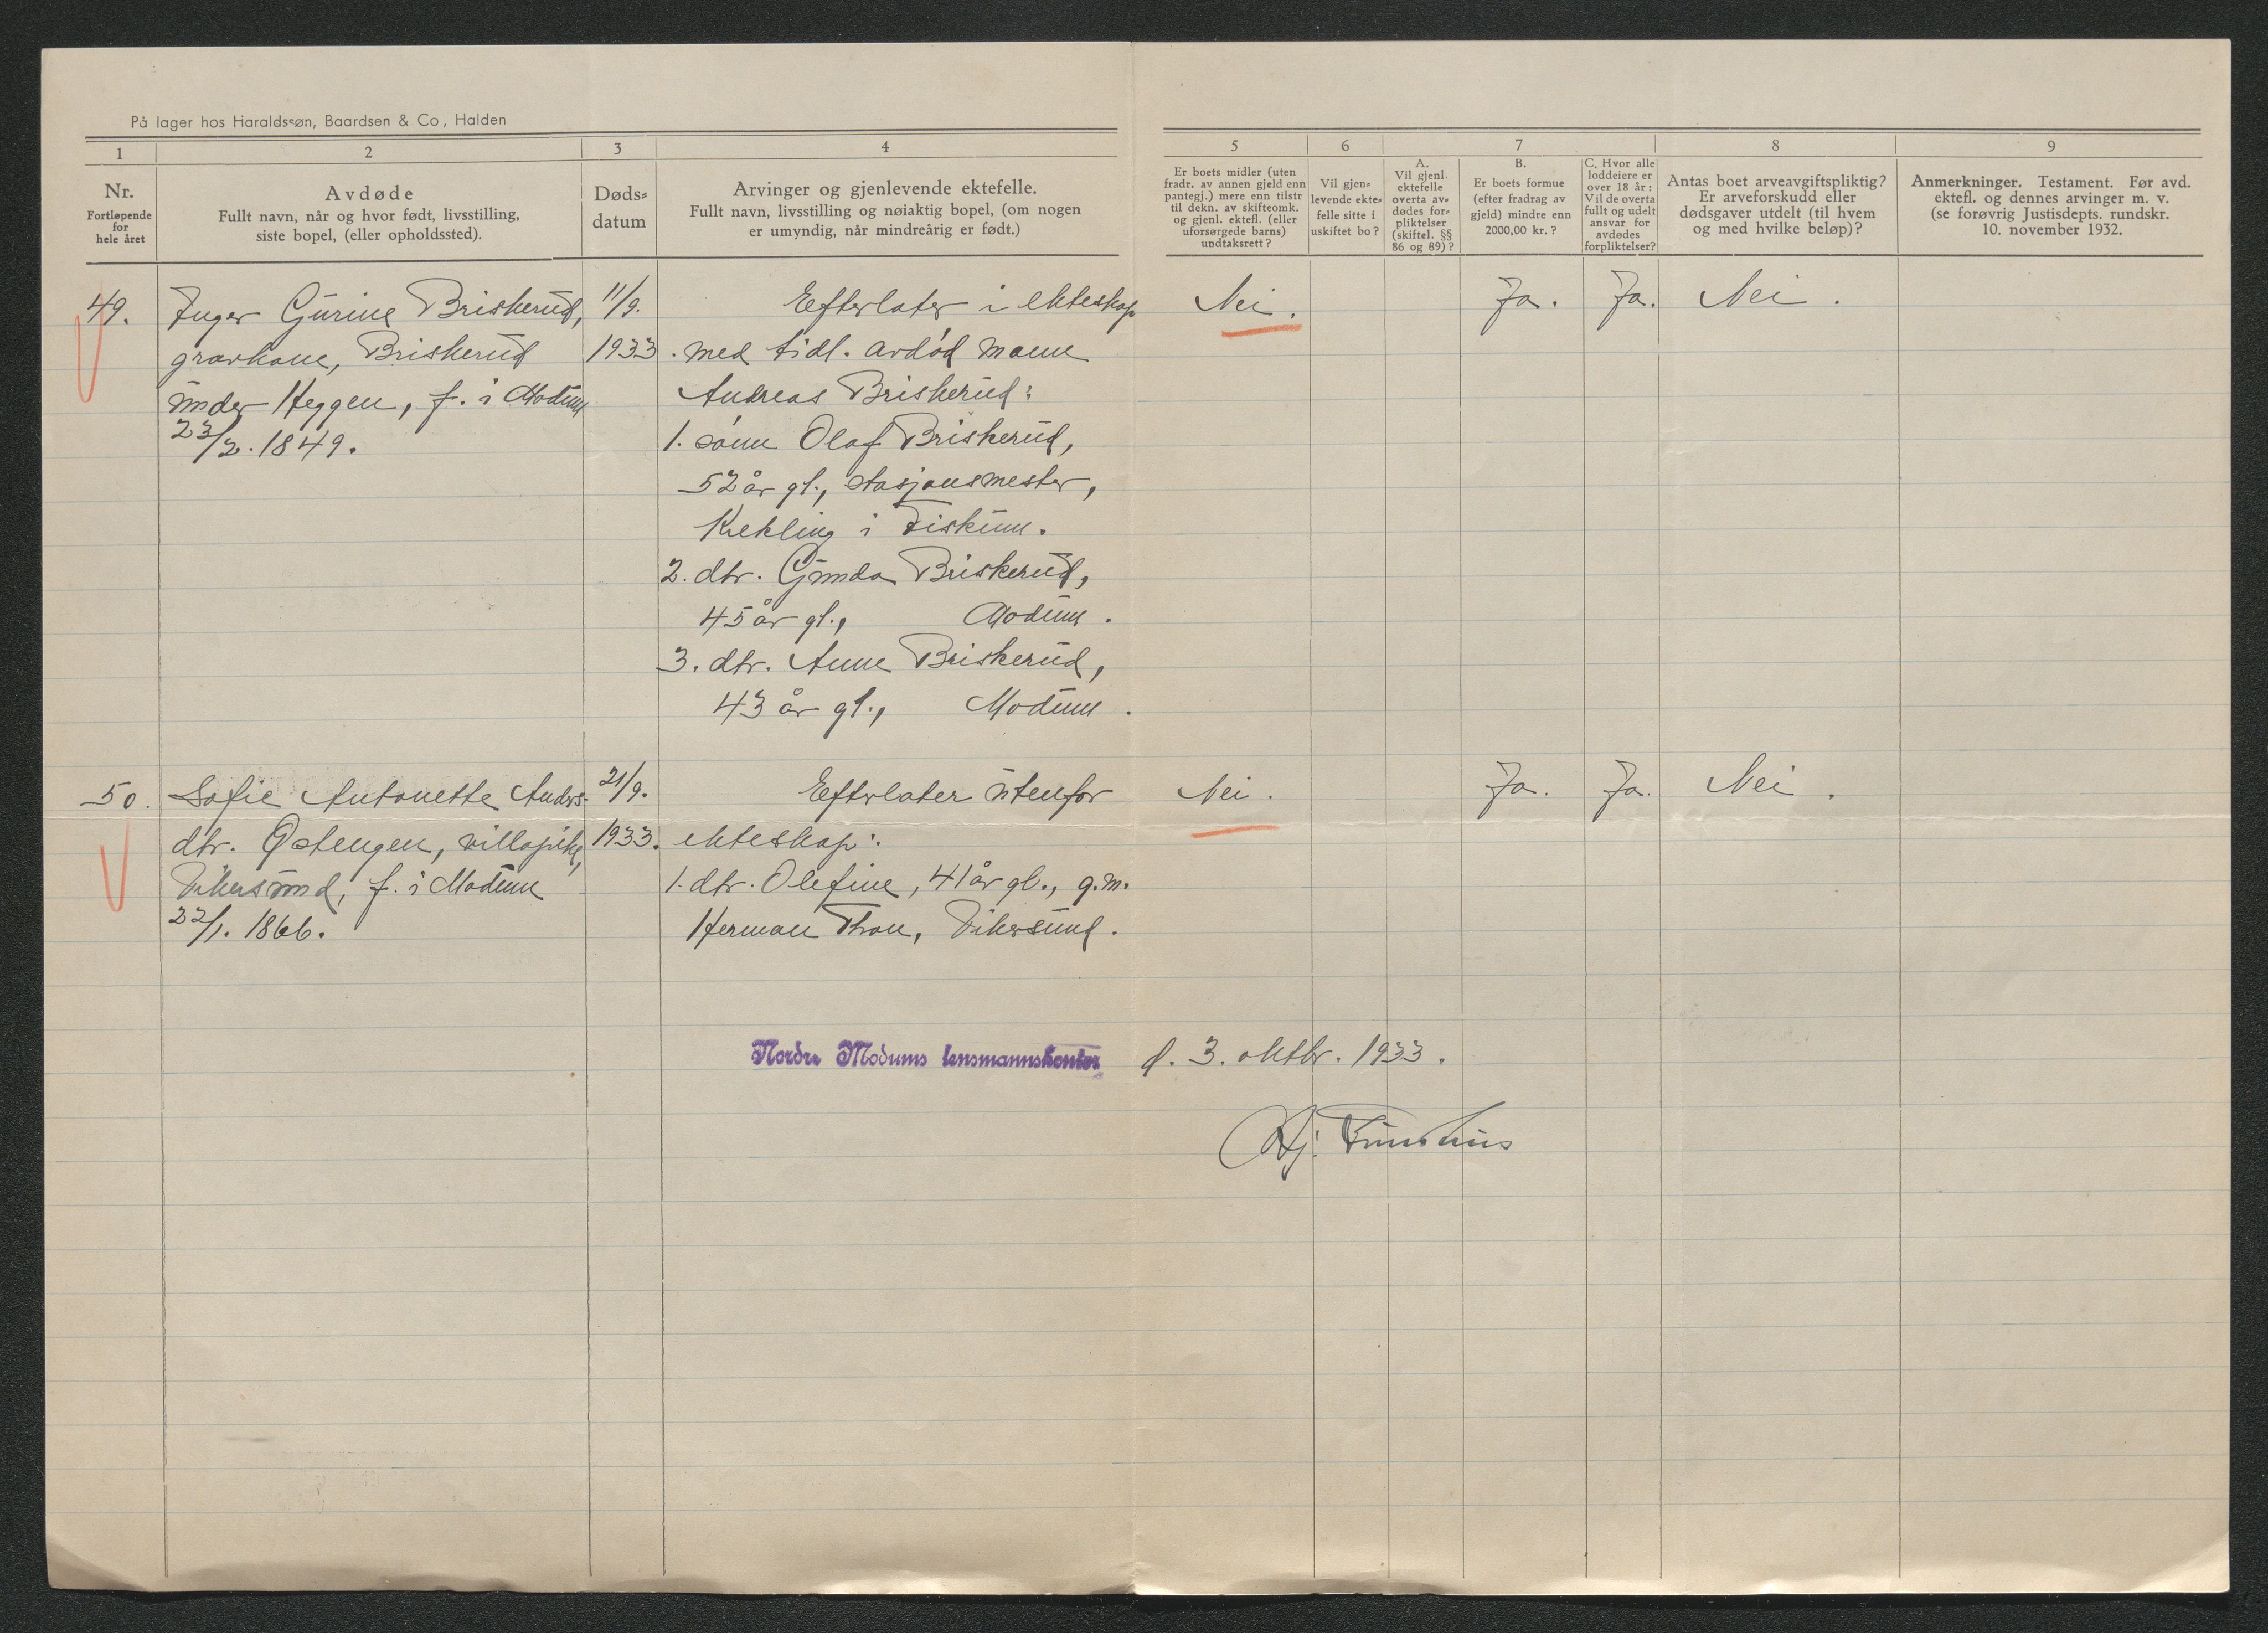 På lager hos Haraldssøn, Baardsen & Co, Halden
1 2 3 4 5 6 7 8 9
Nr.
Fortløpende
for
hele året
Avdøde
Fullt navn, når og hvor født, livsstilling,
siste bopel, (eller opholdssted).
Døds-
datum
Arvinger og gjenlevende ektefelle.
Fullt navn, livsstilling og nøiaktig bopel, (om nogen
er umyndig, når mindreårig er født.)
Er boets midler (uten
fradr. av annen gjeld enn
pantegj.) mere enn tilstr
til dekn. av skifteomk.
og gjenl. ektefl. (eller
uforsørgede barns)
undtaksrett?
Vil gjen-
levende ekte-
felle sitte i
uskiftet bo?
A.
Vil gjenl.
ektefelle
overta av-
dødes for-
pliktelser
(skiftel. §§
86 og 89)?
B.
Er boets formue
(efter fradrag av
gjeld) mindre enn
2000,00 kr.?
C. Hvor alle
loddeiere er
over 18 år:
Vil de overta
fullt og udelt
ansvar for
avdødes
forpliktelser?
Antas boet arveavgiftspliktig?
Er arveforskudd eller
dødsgaver utdelt (til hvem
og med hvilke beløp)?
Anmerkninger. Testament. Før avd.
ektefl. og dennes arvinger m. v.
(se forøvrig Justisdepts. rundskr.
10. november 1932.
49.
Inger Gurine Briskerud,
gravkone, Briskerud
under Heggen, f. i Modum
23/2. 1849.
11/9.
1933.
Efterlater i ekteskap
med tidl. avdød mann
Andreas Briskerud:
1. sønn Olaf Briskerud,
52 år gl., stasjonsmester,
Krekling i Fiskum.
2. dtr. Gunda Briskerud,
45 år gl., Modum.
3. dtr. Anne Briskerud,
43 år gl., Modum.
Nei. Ja. Ja. Nei.
50.
Sofie Antonette Anders-
dtr. Østengen, villapike,
Vikersund, f. i Modum
22/1. 1866.
21/9.
1933.
Efterlater utenfor
ekteskap:
1. dtr. Olefine, 41 år gl., g.m.
Herman Thon, Vikersund.
Nei. Ja. Ja. Nei.
Nordre Modums lensmannskontor d. 3. oktbr. 1933.